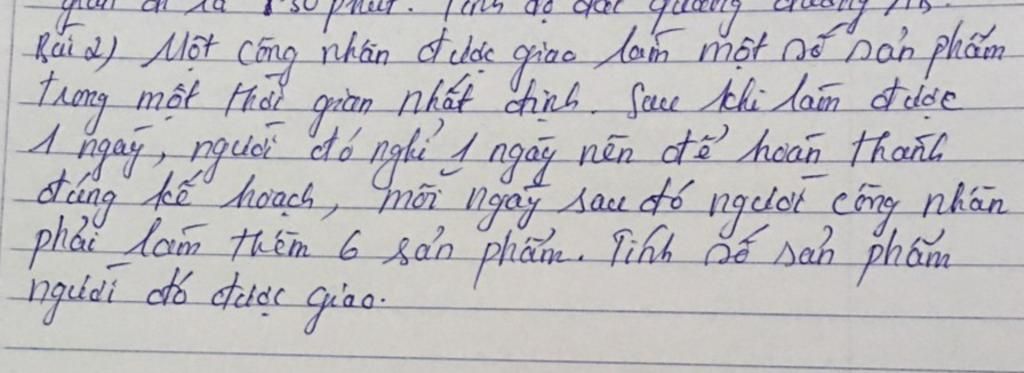 gian đi là 1h30 phút. Tính độ dài quãng đường AB.
Bài 2) Một công nhân được giao làm một số sản phẩm
trong một thời gian nhất định. Sau khi làm được
1 ngày, người đó nghỉ 1 ngày nên để hoàn thành
đúng kế hoạch, mỗi ngày sau đó người công nhân
phải làm thêm 6 sản phẩm. Tính số sản phẩm
người đó được giao.